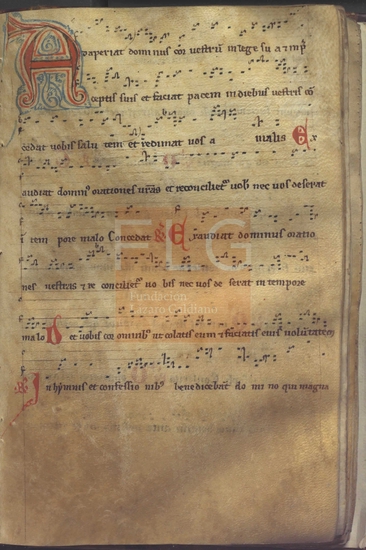 Adaperiat dominus cor vestrum in lege sua et in p̄
ceptis suis et faciat pacem in diebus vestris con
cedat uobis salu tem et redimat uos a malis Ex
audiat domin᷒ orationes vr̄as et reconcilietʳ uob̄ nec uos deserat
i tem pore malo Concedat Exaudiat dominus oratio
nes vestras et re concilietʳ uo bis nec uos de serat in tempore
malo D et uobis cor omnib᷒ ut colatis eum et faciatis eius volūtatem
FLG
Fundación
Lázaro Galdiano
In hymnis et confessio nib᷒ benedicebāt do mi no qui magna